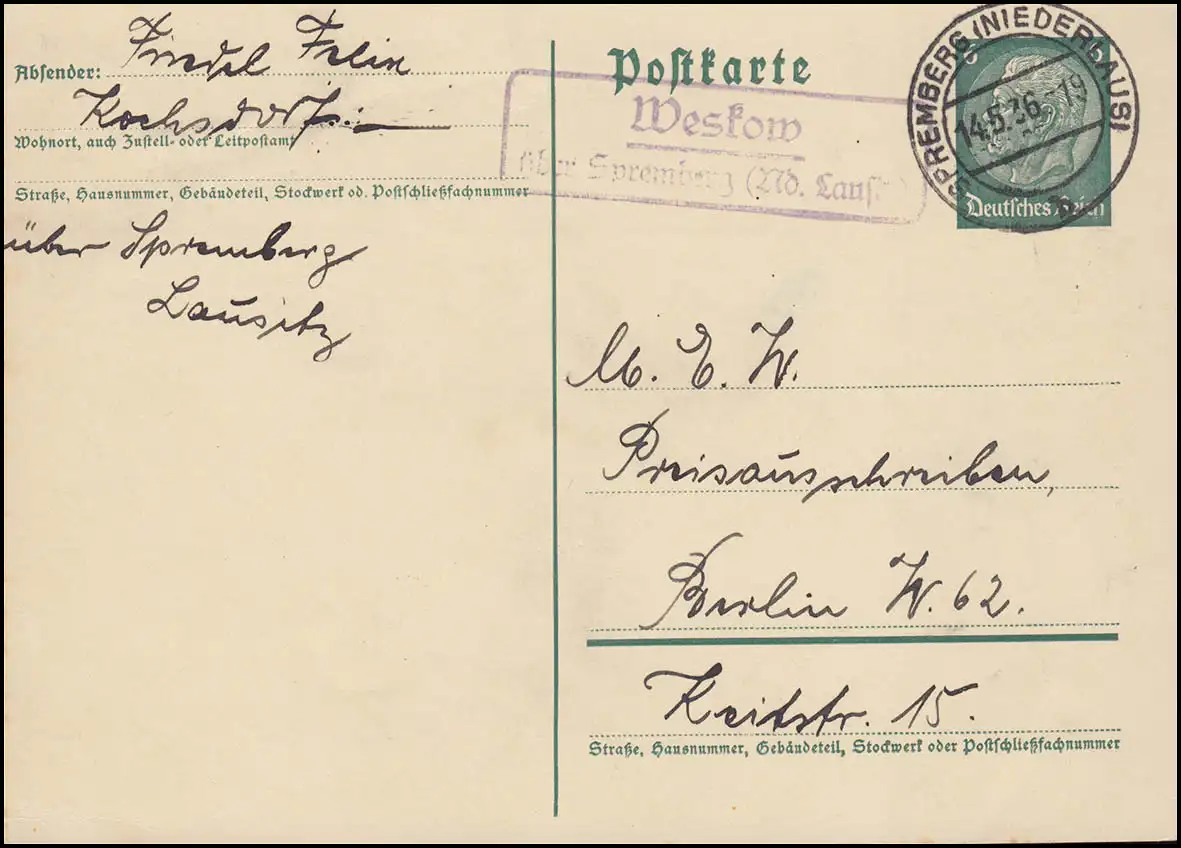 Absender: Friedel Felix
Kochsdorf.
Wohnort, auch Zustell- oder Leitpostamt
Straße, Hausnummer, Gebäudeteil, Stockwerk od. Postschließfachnummer
über Spremberg
Lausitz
Postkarte
Weskow
über Spremberg (Nd. Laus.)
6
SPREMBERG (NIEDERLAUS)
14.5.36.-19
Deutsches Reich
M. E. W.
Preisausschreiben,
Berlin W. 62.
Keitstr. 15.
Straße, Hausnummer, Gebäudeteil, Stockwerk oder Postschließfachnummer